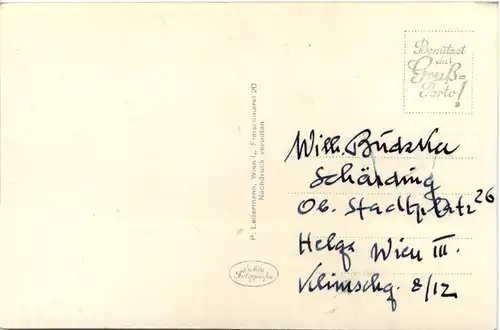 Benützet
das
Gruß=
Porto!
P. Ledermann, Wien I., Fleischmarkt 20
Nachdruck verboten
Echte
Fotografie
Willi Budzka
Schärding
Ob. Stadtplatz 26
Helga Wien III.
Klimschg. 8/12